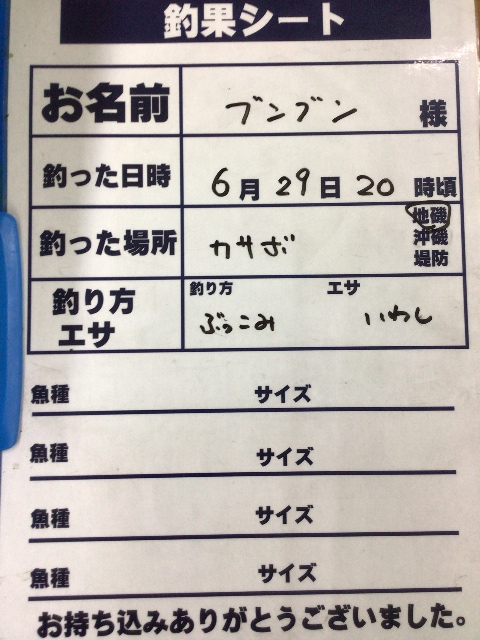 釣果シート
お名前 ブンブン 様
釣った日時 6月29日20時頃
釣った場所 カサボ 地磯
沖磯
堤防
釣り方 エサ
釣り方 ぶっこみ
エサ いわし
魚種 サイズ
魚種 サイズ
魚種 サイズ
魚種 サイズ
お持ち込みありがとうございました。